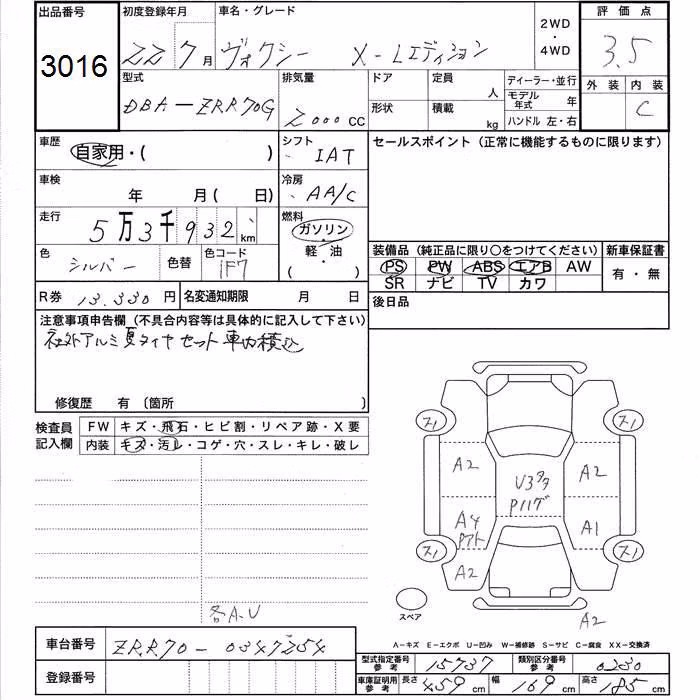 出品番号 初度登録年月 車名・グレード 2WD・4WD 評価点
3016 22 7月 ヴォクシー X-Lエディション 3.5
型式 排気量 ドア 定員 人 ディーラー・並行 外装 内装
DBA-ZRR70G 2000CC 形状 積載 kg モデル年式 年 C
ハンドル 左・右
車歴 シフト セールスポイント(正常に機能するものに限ります)
自家用・( ) IAT
車検 冷房
年 月( 日) AA/C
走行 燃料
5万3千932km ガソリン・軽油( )
色 色替 色コード 装備品(純正品に限り○をつけてください) 新車保証書
シルバー 1F7 PS PW ABS エアB AW 有・無
SR ナビ TV カワ
R券 13.330円 名変通知期限 月 日 後日品
注意事項申告欄(不具合内容等は具体的に記入して下さい)
社外アルミ夏タイヤセット車内積込
修復歴 有〔箇所 〕
検査員記入欄 FW キズ・飛石・ヒビ割・リペア跡・X要
内装 キズ・汚レ・コゲ・穴・スレ・キレ・破レ
ス1 ス1
A2 A2
U3
A4 A1
ス1 ス1
A2
各A.U スペア A2
A-キズ E-エクボ U-凹み W-補修跡 S-サビ C-腐食 XX-交換済
車台番号 ZRR70-0347254 型式指定番号参考 15737 類別区分番号参考 0230
登録番号 車庫証明用参考 長さ 459cm 幅 169cm 高さ 185cm